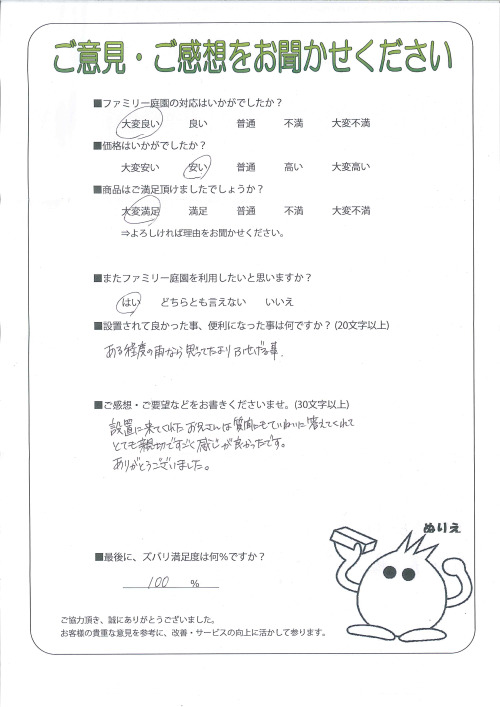 ご意見・ご感想をお聞かせください
■ファミリー庭園の対応はいかがでしたか？
大変良い 良い 普通 不満 大変不満
■価格はいかがでしたか？
大変安い 安い 普通 高い 大変高い
■商品はご満足頂けましたでしょうか？
大変満足 満足 普通 不満 大変不満
⇒よろしければ理由をお聞かせください。
■またファミリー庭園を利用したいと思いますか？
はい どちらとも言えない いいえ
■設置されて良かった事、便利になった事は何ですか？(20文字以上)
ある程度の雨なら思ってたより防せげる事.
■ご感想・ご要望などをお書きくださいませ。(30文字以上)
設置に来てくれたお兄さんは質問にもていねいに答えてくれて
とても親切ですごく感じが良かったです。
ありがとうございました。
ぬりえ
■最後に、ズバリ満足度は何％ですか？
100 %
ご協力頂き、誠にありがとうございました。
お客様の貴重な意見を参考に、改善・サービスの向上に活かして参ります。